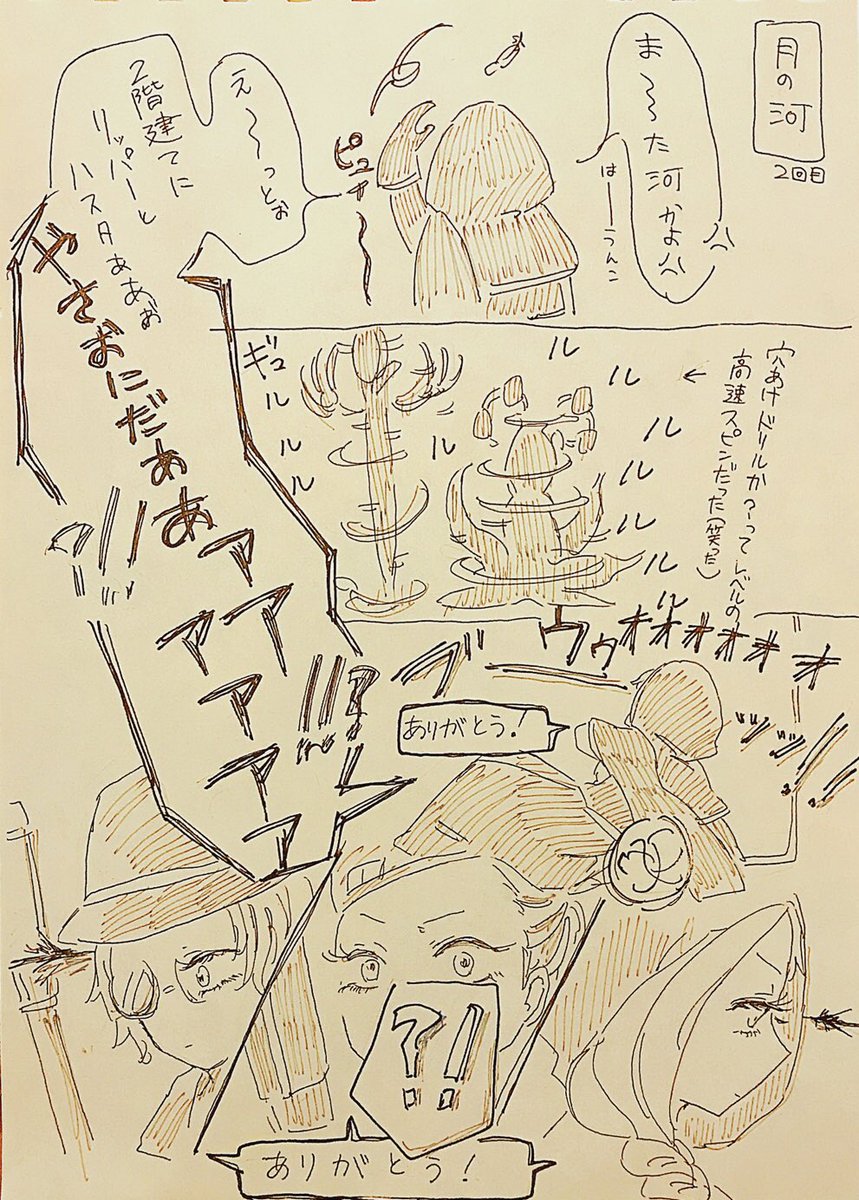 月の河
2回目
ま〜〜た河かよ
はーうんこ
え〜〜っとぉ
2階建てに
リッパーと
ハスタああぉ
やさおにだああ
アアアアアアアア
ピュー〜
穴あけドリルか？ってレベルの
高速スピンだった(笑った)
←
ギュルルルル
ルルルルルルル
ウゥオオオオオオ
ありがとう!
?!
ありがとう!